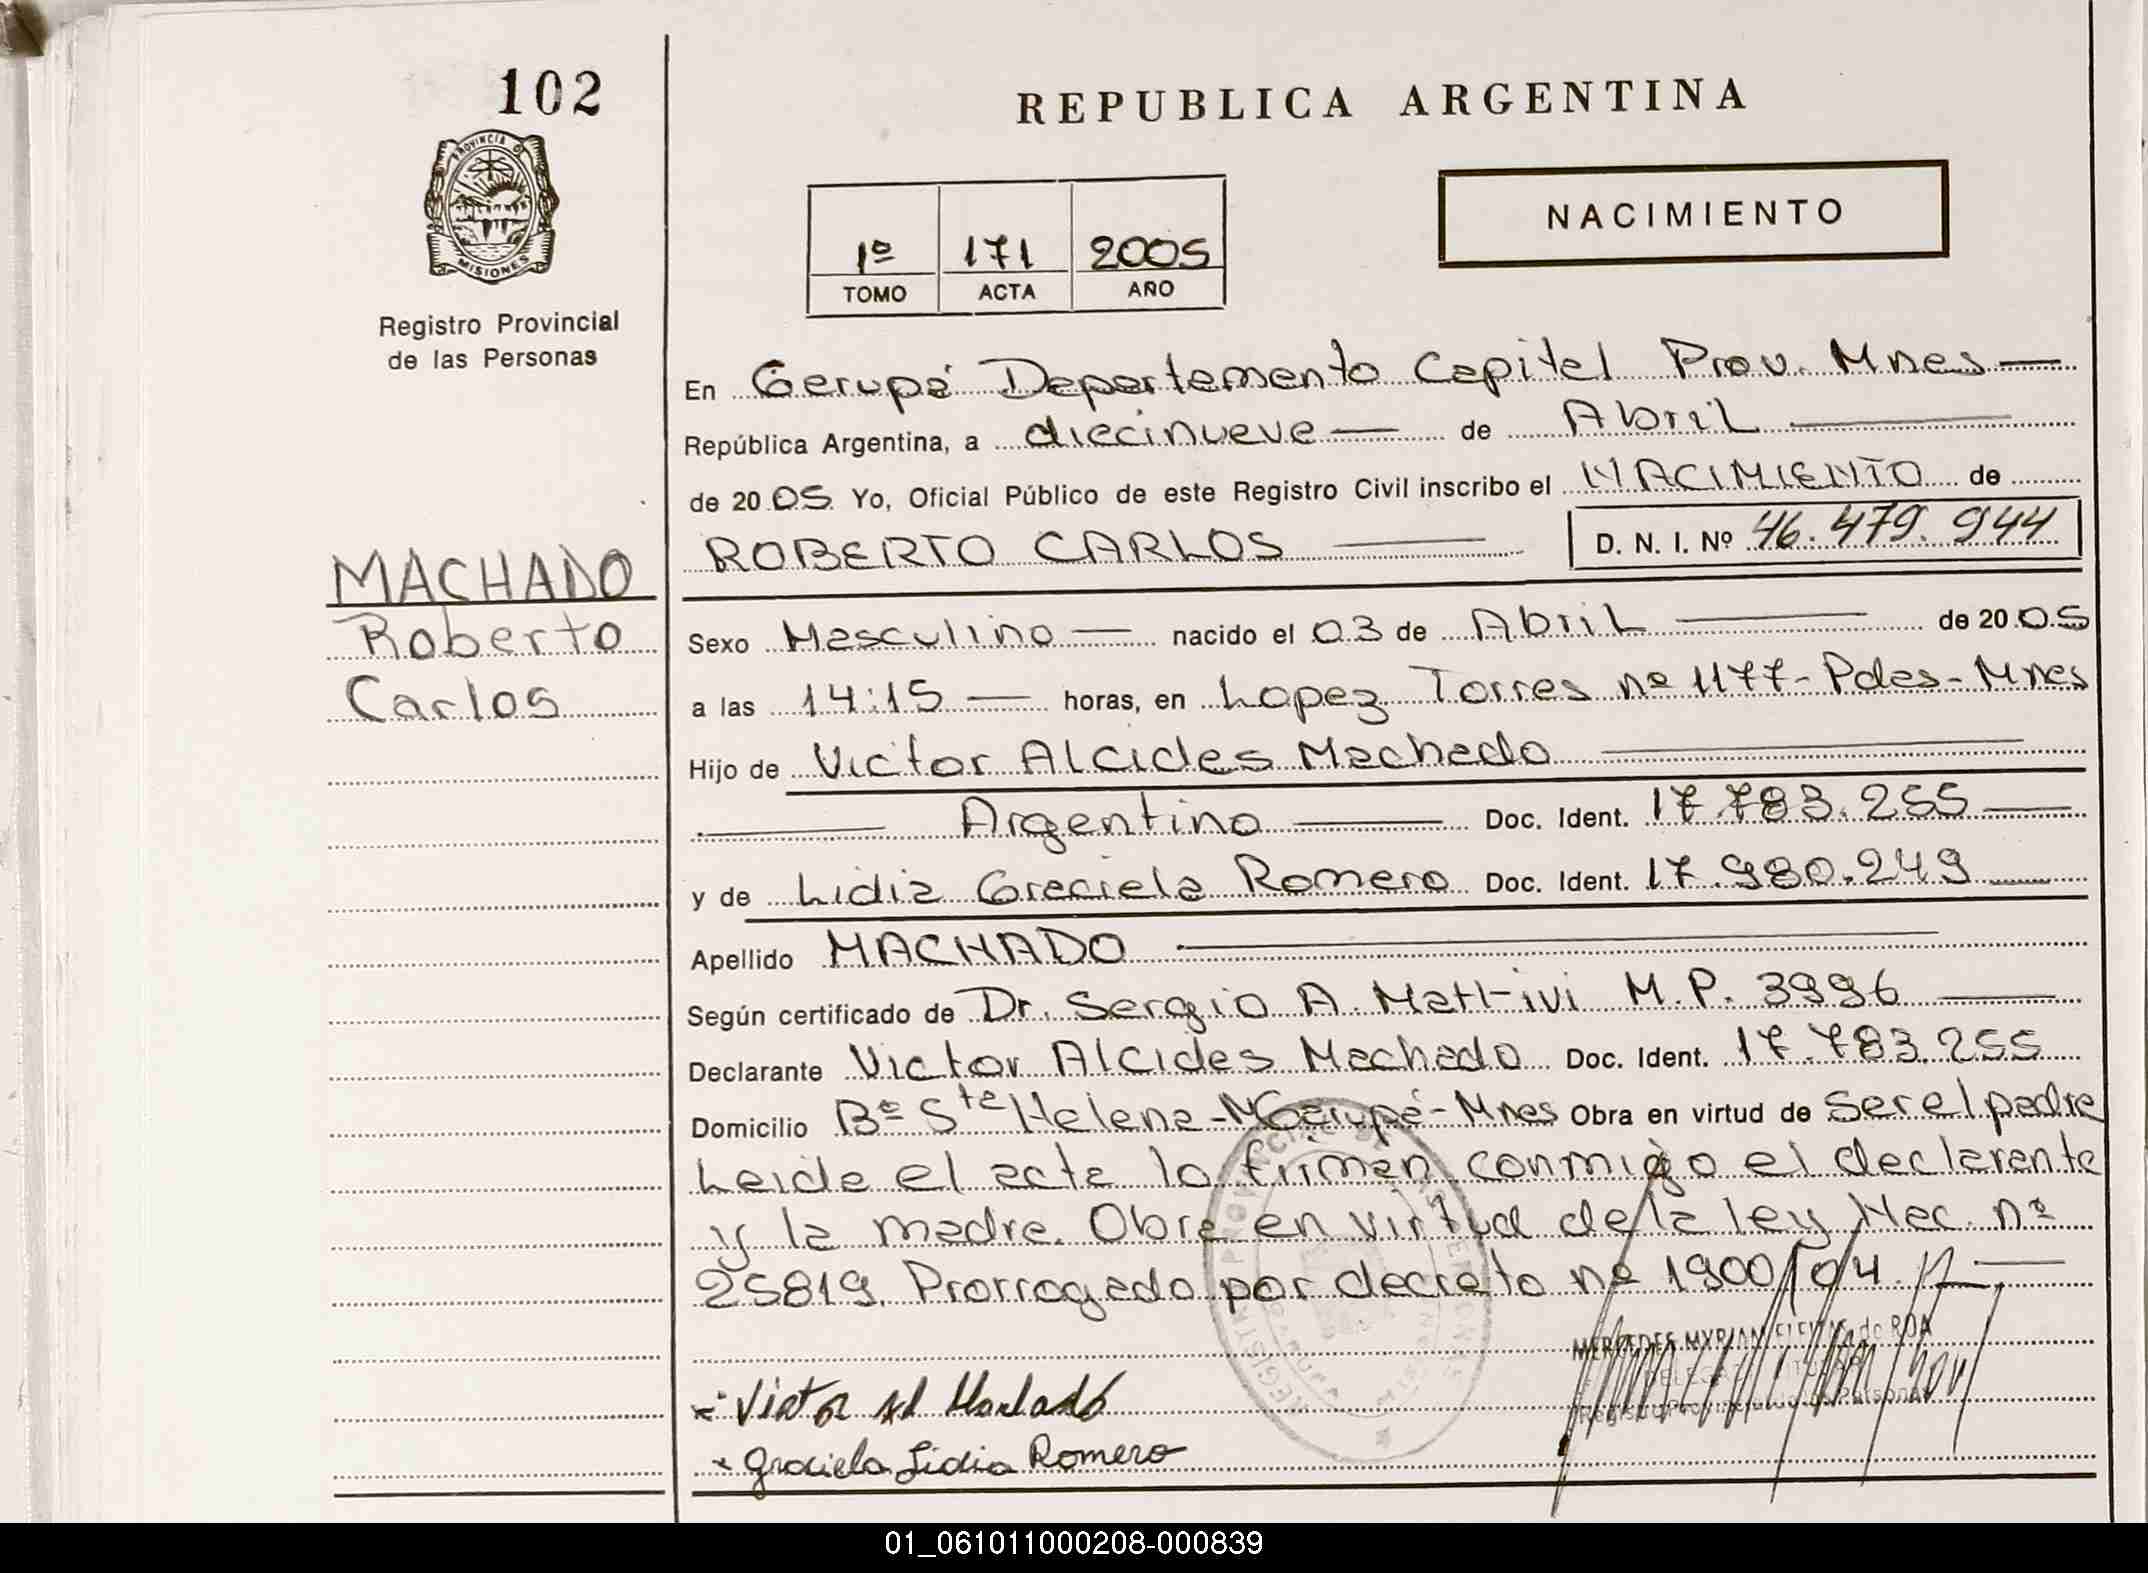 102
REPUBLICA ARGENTINA
PROVINCIA D
MISIONES
Registro Provincial
de las Personas
NACIMIENTO
1º 171 2005
TOMO ACTA AÑO
En Gerupá Departamento Capital Prov. Mnes
República Argentina, a diecinueve de Abril
de 2005 Yo, Oficial Público de este Registro Civil inscribo el NACIMIENTO de
ROBERTO CARLOS D. N. I. Nº 46.479.944
MACHADO
Roberto
Carlos
Sexo Masculino nacido el 03 de Abril de 2005
a las 14:15 horas, en Lopez Torres nº 1177-Pdas-Mnes
Hijo de Victor Alcides Machado
Argentino Doc. Ident. 17.783.255
y de Lidia Graciela Romero Doc. Ident. 17.980.249
Apellido MACHADO
Según certificado de Dr. Sergio A. Mattivi M.P. 3996
Declarante Victor Alcides Machado Doc. Ident. 17.783.255
Domicilio Bº Sta Helena - Garupá - Mnes Obra en virtud de ser el padre
Leida el acta la firman conmigo el declarante
y la madre. Obra en virtud de la ley Nac. nº
25819. Prorrogado por decreto nº 1900/04
MERCEDES MYRIAN de ROA
Victor Al Machado
Graciela Lidia Romero
01_061011000208-000839